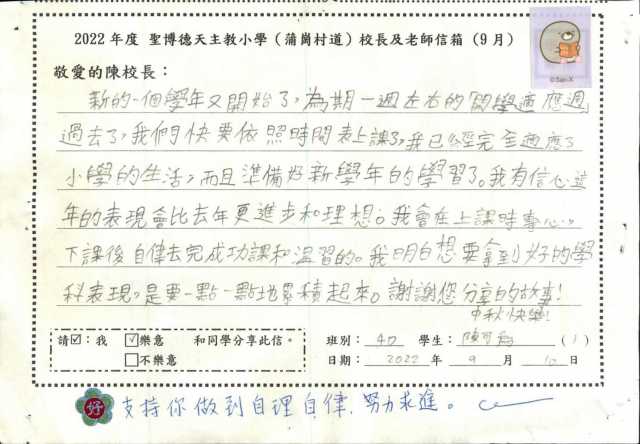 2022 年度 聖博德天主教小學（蒲崗村道）校長及老師信箱（9月）
©San-X
敬愛的陳校長：
新的一個學年又開始了，為期一週左右的「開學適應週」
過去了，我們快要依照時間表上課了，我已經完全適應了
小學的生活，而且準備好新學年的學習了。我有信心這
年的表現會比去年更進步和理想。我會在上課時專心，
下課後自律去完成功課和溫習的。我明白想要拿到好的學
科表現，是要一點一點地累積起來。謝謝您分享的故事！
中秋快樂！
請☑：我 ☑樂意 和同學分享此信。
□不樂意
班別： 4D 學生： 陳 (1)
日期： 2022 年 9 月 10 日
好 支持你做到自理自律，努力求進。